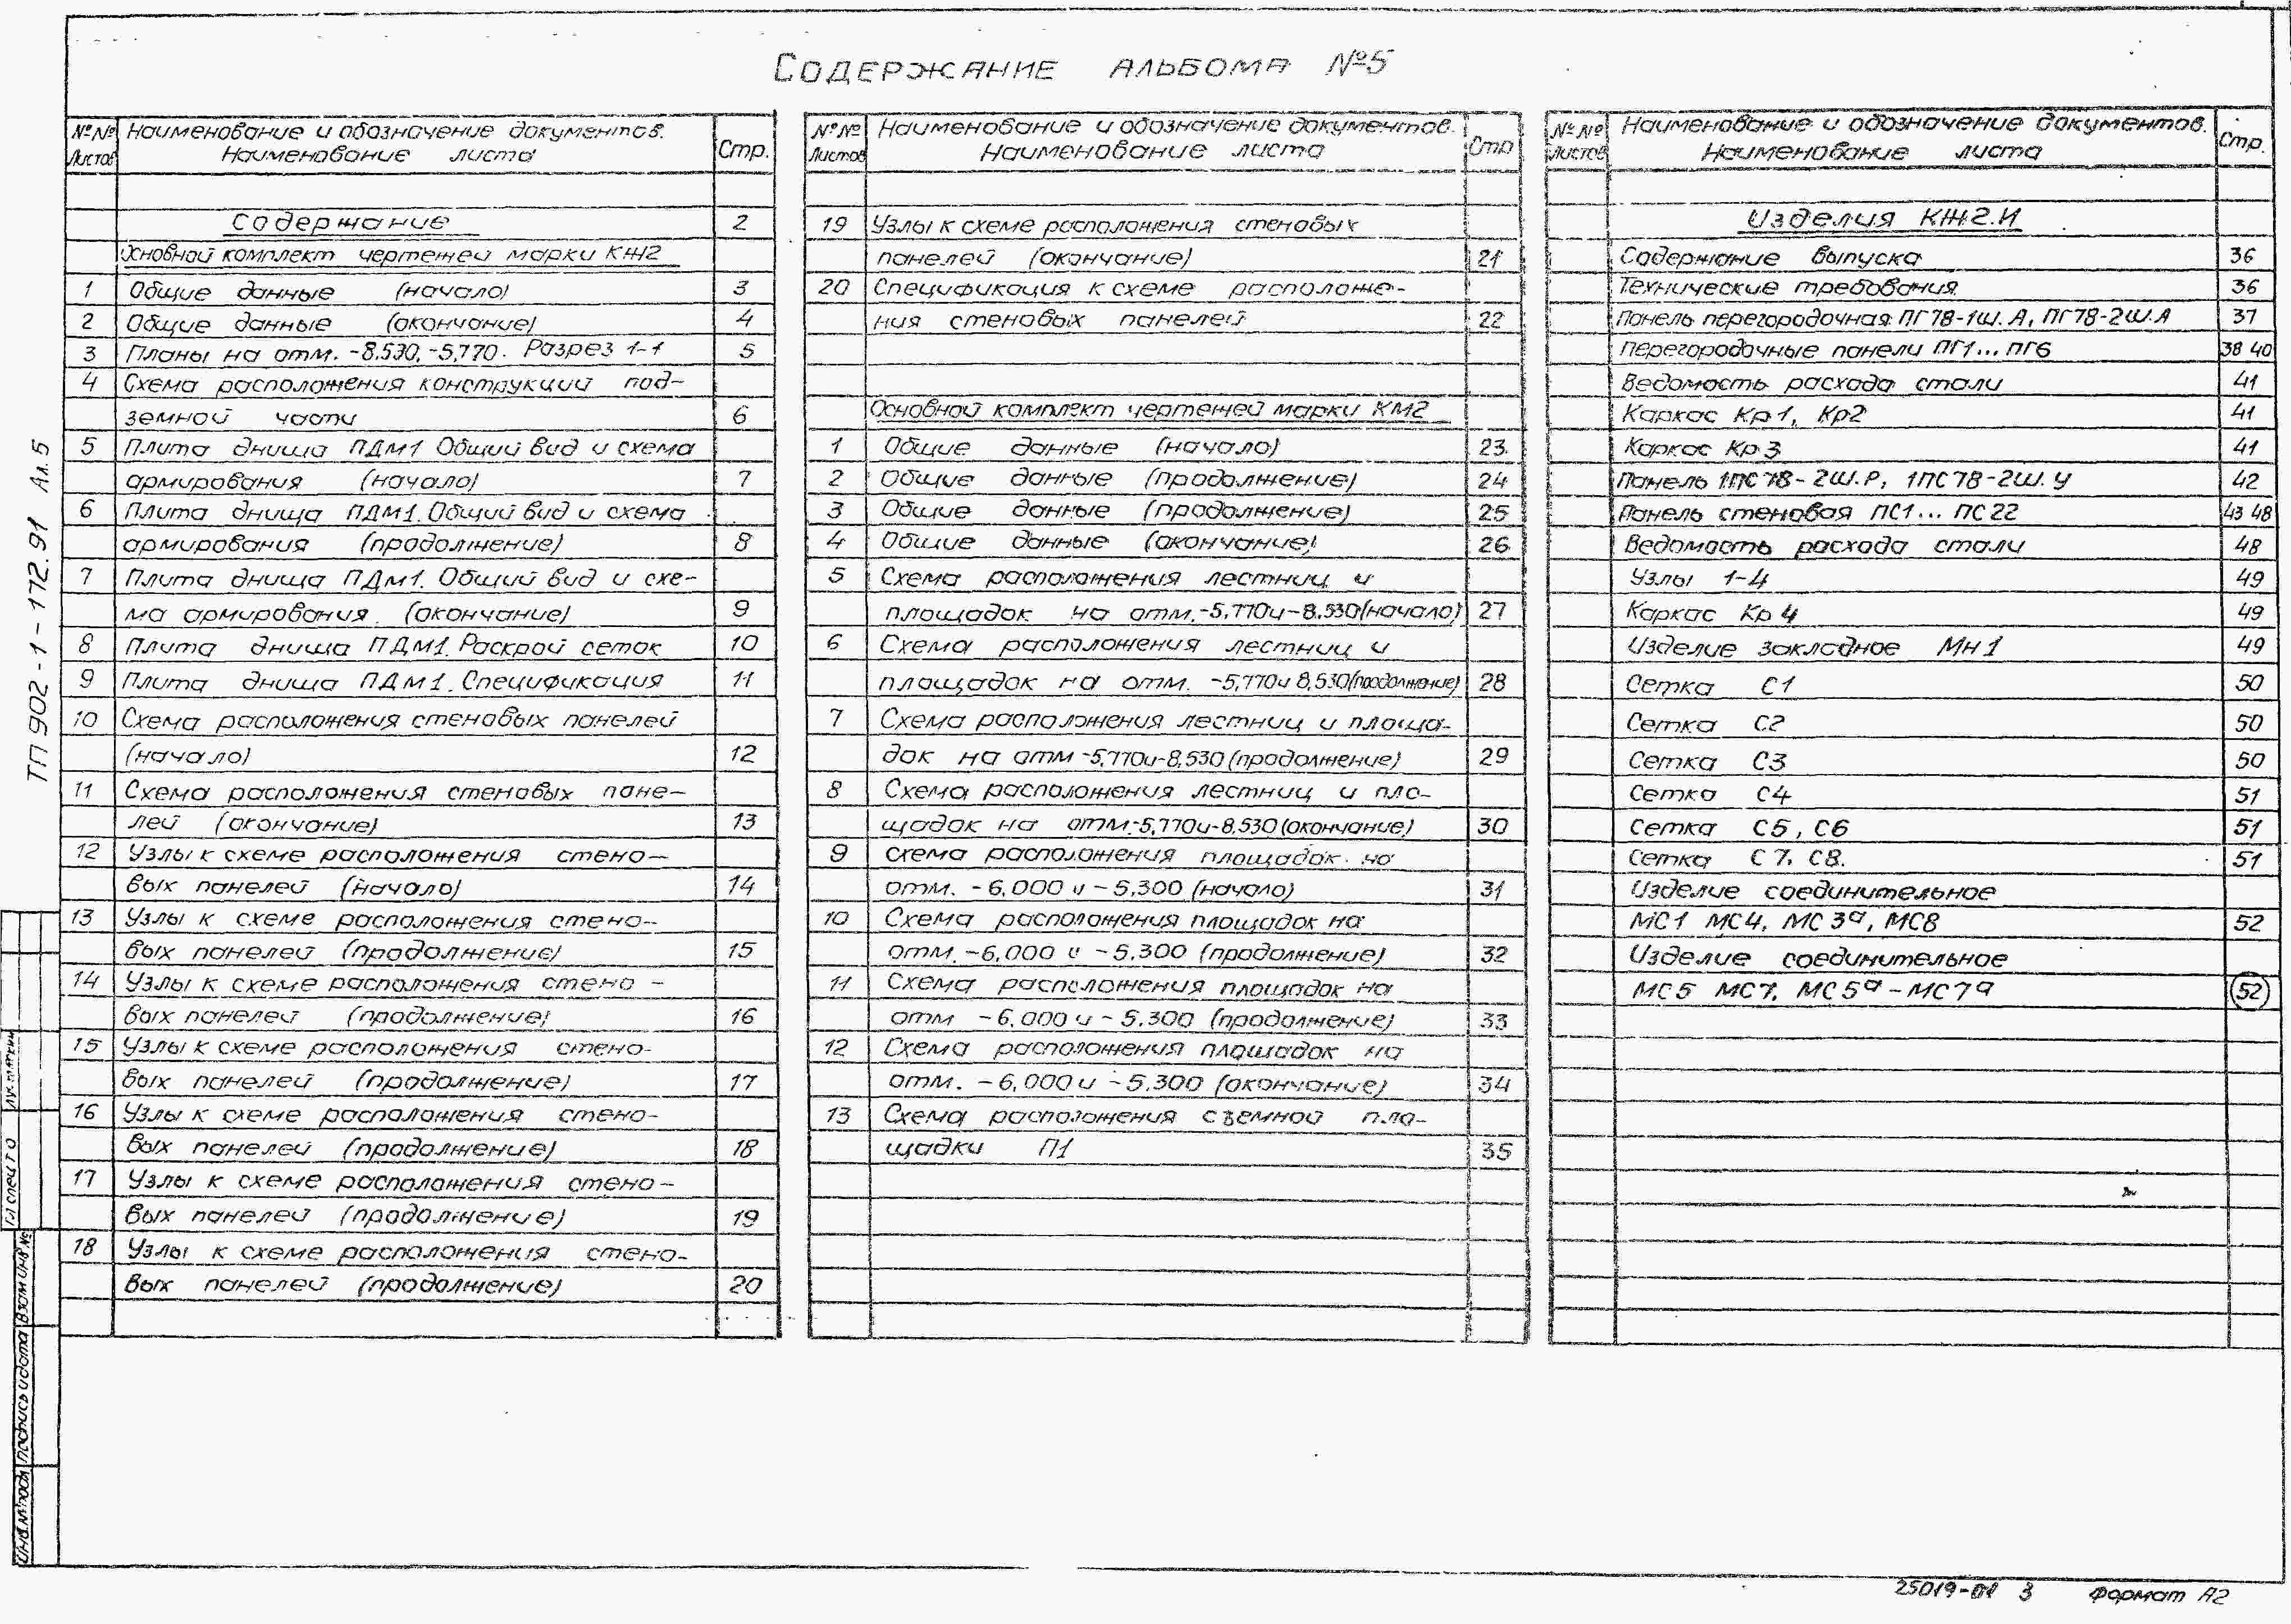 Содержание альбома №5
№№ листов Наименование и обозначение документов. Наименование листа Стр.
Содержание 2
Основной комплект чертежей марки КЖ2
1 Общие данные (начало) 3
2 Общие данные (окончание) 4
3 Планы на отм. -8.530, -5,770. Разрез 1-1 5
4 Схема расположения конструкций под-
земной части 6
5 Плита днища ПДм1 Общий вид и схема
армирования (начало) 7
6 Плита днища ПДм1. Общий вид и схема
армирования (продолжение) 8
7 Плита днища ПДм1. Общий вид и схе-
ма армирования (окончание) 9
8 Плита днища ПДм1. Раскрой сеток 10
9 Плита днища ПДм1. Спецификация 11
10 Схема расположения стеновых панелей
(начало) 12
11 Схема расположения стеновых пане-
лей (окончание) 13
12 Узлы к схеме расположения стено-
вых панелей (начало) 14
13 Узлы к схеме расположения стено-
вых панелей (продолжение) 15
14 Узлы к схеме расположения стено-
вых панелей (продолжение) 16
15 Узлы к схеме расположения стено-
вых панелей (продолжение) 17
16 Узлы к схеме расположения стено-
вых панелей (продолжение) 18
17 Узлы к схеме расположения стено-
вых панелей (продолжение) 19
18 Узлы к схеме расположения стено-
вых панелей (продолжение) 20
№№ листов Наименование и обозначение документов. Наименование листа Стр
19 Узлы к схеме расположения стеновых
панелей (окончание) 21
20 Спецификация к схеме расположе-
ния стеновых панелей 22
Основной комплект чертежей марки КМ2
1 Общие данные (начало) 23
2 Общие данные (продолжение) 24
3 Общие данные (продолжение) 25
4 Общие данные (окончание) 26
5 Схема расположения лестниц и
площадок на отм. -5,770 и -8,530 (начало) 27
6 Схема расположения лестниц и
площадок на отм. -5,770 и 8,530 (продолжение) 28
7 Схема расположения лестниц и площа-
док на отм -5,770 и -8,530 (продолжение) 29
8 Схема расположения лестниц и пло-
щадок на отм. -5,770 и -8,530 (окончание) 30
9 Схема расположения площадок на
отм. -6,000 и -5,300 (начало) 31
10 Схема расположения площадок на
отм. -6,000 и -5,300 (продолжение) 32
11 Схема расположения площадок на
отм -6,000 и -5,300 (продолжение) 33
12 Схема расположения площадок на
отм. -6,000 и -5,300 (окончание) 34
13 Схема расположения съемной пло-
щадки П1 35
№№ листов Наименование и обозначение документов. Наименование листа Стр.
Изделия КЖ2.И
Содержание выпуска 36
Технические требования 36
Панель перегородочная ПГ78-1ш.А, ПГ78-2ш.А 37
Перегородочные панели ПГ1...ПГ6 38 40
Ведомость расхода стали 41
Каркас Кр1, Кр2 41
Каркас Кр3 41
Панель 1ПС78-2ш.Р, 1ПС78-2ш.У 42
Панель стеновая ПС1...ПС22 43 48
Ведомость расхода стали 48
Узлы 1-4 49
Каркас Кр4 49
Изделие закладное Мн1 49
Сетка С1 50
Сетка С2 50
Сетка С3 50
Сетка С4 51
Сетка С5, С6 51
Сетка С7, С8. 51
Изделие соединительное
МС1 МС4, МС3а, МС8 52
Изделие соединительное
МС5 МС7, МС5а-МС7а 52
ТП 902-1-172.91 Ал.5
Гл спец ТО
Инв.№ подл Подпись и дата Взам инв №
25019-01 3 Формат А2